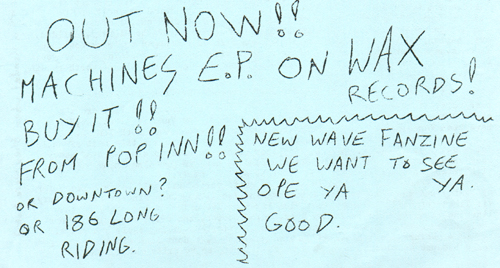 OUT NOW!!
MACHINES E.P. ON WAX
RECORDS!
BUY IT!!
FROM POP INN!!
OR DOWNTOWN?
OR 186 LONG
RIDING.
NEW WAVE FANZINE
WE WANT TO SEE
OPE YA YA.
GOOD.